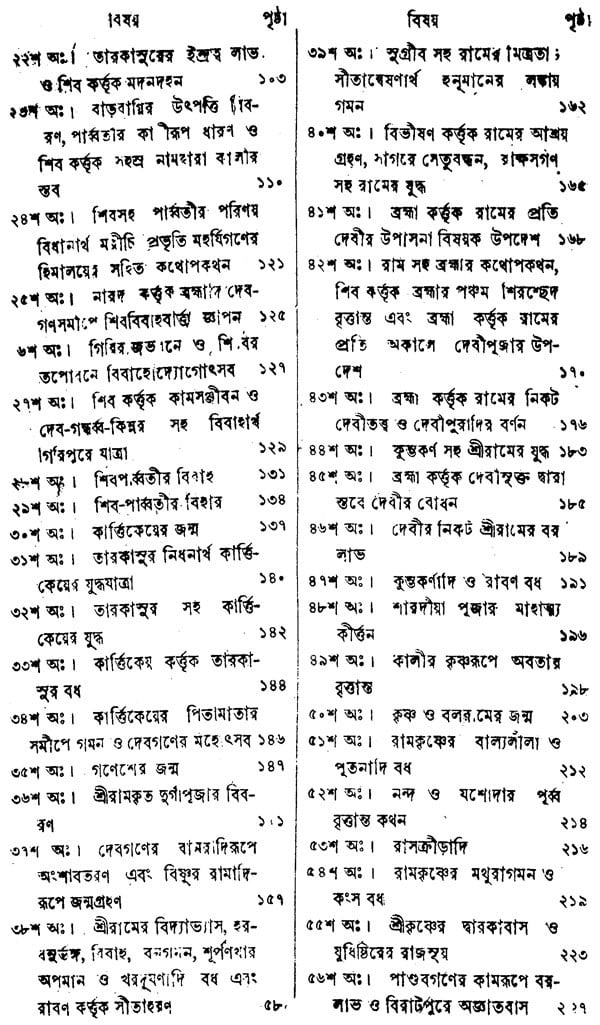 বিষয় পৃষ্ঠা
২২শ অঃ। তারকাসুরের ইন্দ্রত্ব লাভ
ও শিব কর্ত্তৃক মদনদহন ১০৩
২৩শ অঃ। বাড়বাগ্নির উৎপত্তি বিব-
রণ, পার্ব্বতীর কালীরূপ ধারণ ও
শিব কর্ত্তৃক সহস্র নামদ্বারা কালীর
স্তব ১১০
২৪শ অঃ। শিবসহ পার্ব্বতীর পরিণয়
বিধানার্থ মরীচি প্রভৃতি মহর্ষিগণের
হিমালয়ের সহিত কথোপকথন ১২১
২৫শ অঃ। নারদ কর্ত্তৃক ব্রহ্মাদি দেব-
গণসমীপে শিববিবাহবার্ত্তা জ্ঞাপন ১২৫
৬শ অঃ। গিরির ভবনে ও শিবের
তপোবনে বিবাহোদ্যোগোৎসব ১২৭
২৭শ অঃ। শিব কর্ত্তৃক কামসঞ্জীবন ও
দেব-গন্ধর্ব্ব-কিন্নর সহ বিবাহার্থ
গিরিপুরে যাত্রা ১২৯
২৮শ অঃ। শিবপার্ব্বতীর বিবাহ ১৩১
২৯শ অঃ। শিব-পার্ব্বতীর বিহার ১৩৪
৩০শ অঃ। কার্ত্তিকেয়ের জন্ম ১৩৭
৩১শ অঃ। তারকাসুর নিধনার্থ কার্ত্তি-
কেয়ের যুদ্ধযাত্রা ১৪০
৩২শ অঃ। তারকাসুর সহ কার্ত্তি-
কেয়ের যুদ্ধ ১৪২
৩৩শ অঃ। কার্ত্তিকেয় কর্ত্তৃক তারকা-
সুর বধ ১৪৪
৩৪শ অঃ। কার্ত্তিকেয়ের পিতামাতার
সমীপে গমন ও দেবগণের মহোৎসব ১৪৬
৩৫শ অঃ। গণেশের জন্ম ১৪৭
৩৬শ অঃ। শ্রীরামকৃত দুর্গাপূজার বিব-
রণ
৩৭শ অঃ। দেবগণের বানরাদিরূপে
অংশাবতরণ এবং বিষ্ণুর রামাদি-
রূপে জন্মগ্রহণ ১৫৭
৩৮শ অঃ। শ্রীরামের বিদ্যাভ্যাস, হর-
ধনুর্ভঙ্গ, বিবাহ, বনগমন, শূর্পণখার
অপমান ও খরদূষণাদি বধ এবং
রাবণ কর্ত্তৃক সীতাহরণ ৫৮
বিষয় পৃষ্ঠা
৩৯শ অঃ। সুগ্রীব সহ রামের মিত্রতা;
সীতান্বেষণার্থ হনুমানের লঙ্কায়
গমন ১৬২
৪০শ অঃ। বিভীষণ কর্ত্তৃক রামের আশ্রয়
গ্রহণ, সাগরে সেতুবন্ধন, রাক্ষসগণ
সহ রামের যুদ্ধ ১৬৫
৪১শ অঃ। ব্রহ্মা কর্ত্তৃক রামের প্রতি
দেবীর উপাসনা বিষয়ক উপদেশ ১৬৮
৪২শ অঃ। রাম সহ ব্রহ্মার কথোপকথন,
শিব কর্ত্তৃক ব্রহ্মার পঞ্চম শিরশ্ছেদ
বৃত্তান্ত এবং ব্রহ্মা কর্ত্তৃক রামের
প্রতি অকালে দেবীপূজার উপ-
দেশ ১৭০
৪৩শ অঃ। ব্রহ্মা কর্ত্তৃক রামের নিকট
দেবীতত্ত্ব ও দেবীপুরাদির বর্ণন ১৭৬
৪৪শ অঃ। কুম্ভকর্ণ সহ শ্রীরামের যুদ্ধ ১৮৩
৪৫শ অঃ। ব্রহ্মা কর্ত্তৃক দেবীসূক্ত দ্বারা
স্তবে দেবীর বোধন ১৮৫
৪৬শ অঃ। দেবীর নিকট শ্রীরামের বর
লাভ ১৮৯
৪৭শ অঃ। কুম্ভকর্ণাদি ও রাবণ বধ ১৯১
৪৮শ অঃ। শারদীয়া পূজার মাহাত্ম্য
কীর্ত্তন ১৯৬
৪৯শ অঃ। কালীর কৃষ্ণরূপে অবতার
বৃত্তান্ত ১৯৮
৫০শ অঃ। কৃষ্ণ ও বলরামের জন্ম ২০৩
৫১শ অঃ। রামকৃষ্ণের বাল্যলীলা ও
পূতনাদি বধ ২১২
৫২শ অঃ। নন্দ ও যশোদার পূর্ব্ব
বৃত্তান্ত কথন ২১৪
৫৩শ অঃ। রাসক্রীড়াদি ২১৬
৫৪শ অঃ। রামকৃষ্ণের মথুরাগমন ও
কংস বধ ২১৯
৫৫শ অঃ। শ্রীকৃষ্ণের দ্বারকাবাস ও
যুধিষ্ঠিরের রাজসূয় ২২৩
৫৬শ অঃ। পাণ্ডবগণের কামরূপে বর-
লাভ ও বিরাটপুরে অজ্ঞাতবাস ২২৭